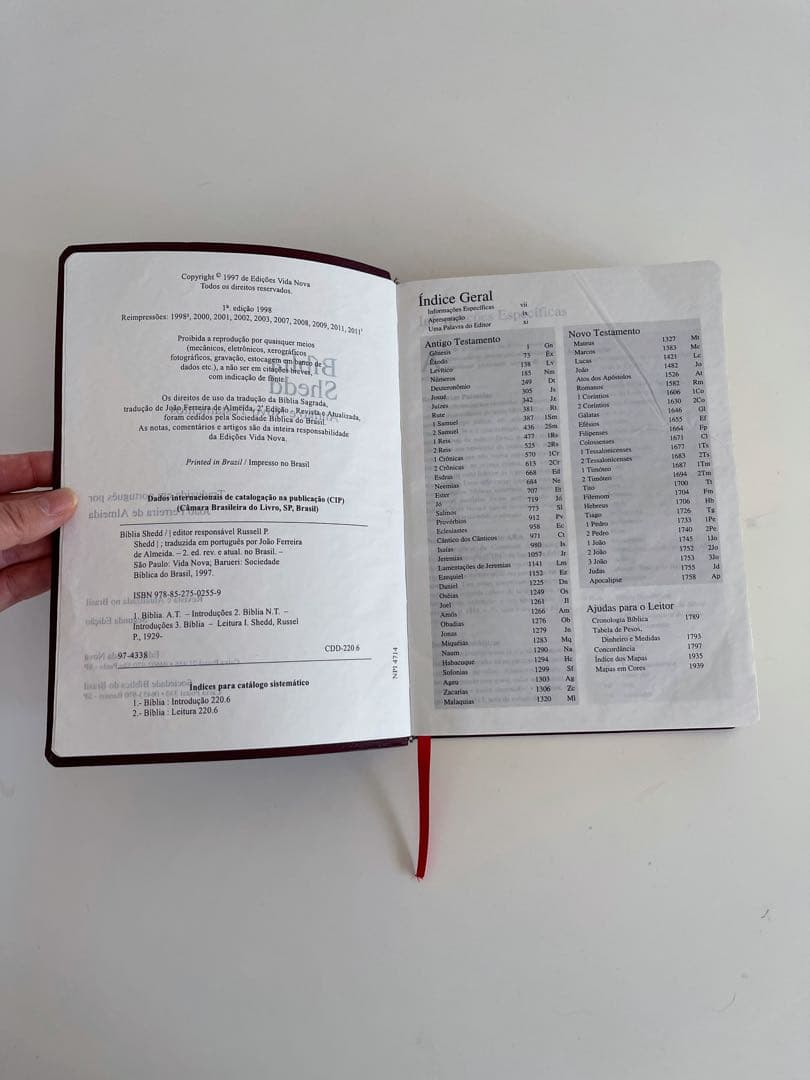 Copyright © 1997 de Edições Vida Nova
Todos os direitos reservados.
1ª. edição 1998
Reimpressões: 1998², 2000, 2001, 2002, 2003, 2007, 2008, 2009, 2011, 2011¹
Proibida a reprodução por quaisquer meios
(mecânicos, eletrônicos, xerográficos
fotográficos, gravação, estocagem em banco de
dados etc.), a não ser em citações breves,
com indicação de fonte.
Os direitos de uso da tradução da Bíblia Sagrada,
tradução de João Ferreira de Almeida, 2ª Edição - Revista e Atualizada,
foram cedidos pela Sociedade Bíblica do Brasil.
As notas, comentários e artigos são da inteira responsabilidade
da Edições Vida Nova.
Printed in Brazil / Impresso no Brasil
Dados internacionais de catalogação na publicação (CIP)
(Câmara Brasileira do Livro, SP, Brasil)
Bíblia Shedd / [ editor responsável Russell P.
Shedd ] ; traduzida em português por João Ferreira
de Almeida. – 2. ed. rev. e atual. no Brasil. –
São Paulo: Vida Nova; Barueri: Sociedade
Bíblica do Brasil, 1997.
ISBN 978-85-275-0255-9
1. Bíblia. A.T. – Introduções 2. Bíblia N.T. –
Introduções 3. Bíblia – Leitura I. Shedd, Russel
P., 1929-
97-4338 CDD-220.6
Índices para catálogo sistemático
1.- Bíblia : Introdução 220.6
2.- Bíblia : Leitura 220.6
NPI 4714
Índice Geral
Informações Específicas vii
Apresentação ix
Uma Palavra do Editor xi
Antigo Testamento
Gênesis 1 Gn
Êxodo 73 Êx
Levítico 138 Lv
Números 185 Nm
Deuteronômio 249 Dt
Josué 305 Js
Juízes 342 Jz
Rute 381 Rt
1 Samuel 387 1Sm
2 Samuel 436 2Sm
1 Reis 477 1Rs
2 Reis 525 2Rs
1 Crônicas 570 1Cr
2 Crônicas 615 2Cr
Esdras 668 Ed
Neemias 684 Ne
Ester 707 Et
Jó 719 Jó
Salmos 773 Sl
Provérbios 912 Pv
Eclesiastes 958 Ec
Cântico dos Cânticos 971 Ct
Isaías 980 Is
Jeremias 1057 Jr
Lamentações de Jeremias 1141 Lm
Ezequiel 1152 Ez
Daniel 1225 Dn
Oséias 1249 Os
Joel 1261 Jl
Amós 1266 Am
Obadias 1276 Ob
Jonas 1279 Jn
Miquéias 1283 Mq
Naum 1290 Na
Habacuque 1294 Hc
Sofonias 1299 Sf
Ageu 1303 Ag
Zacarias 1306 Zc
Malaquias 1320 Ml
Novo Testamento
Mateus 1327 Mt
Marcos 1383 Mc
Lucas 1421 Lc
João 1482 Jo
Atos dos Apóstolos 1526 At
Romanos 1582 Rm
1 Coríntios 1606 1Co
2 Coríntios 1630 2Co
Gálatas 1646 Gl
Efésios 1655 Ef
Filipenses 1664 Fp
Colossenses 1671 Cl
1 Tessalonicenses 1677 1Ts
2 Tessalonicenses 1683 2Ts
1 Timóteo 1687 1Tm
2 Timóteo 1694 2Tm
Tito 1700 Tt
Filemom 1704 Fm
Hebreus 1706 Hb
Tiago 1726 Tg
1 Pedro 1733 1Pe
2 Pedro 1740 2Pe
1 João 1745 1Jo
2 João 1752 2Jo
3 João 1753 3Jo
Judas 1755 Jd
Apocalipse 1758 Ap
Ajudas para o Leitor
Cronologia Bíblica 1789
Tabela de Pesos,
Dinheiro e Medidas 1793
Concordância 1797
Índice dos Mapas 1935
Mapas em Cores 1939